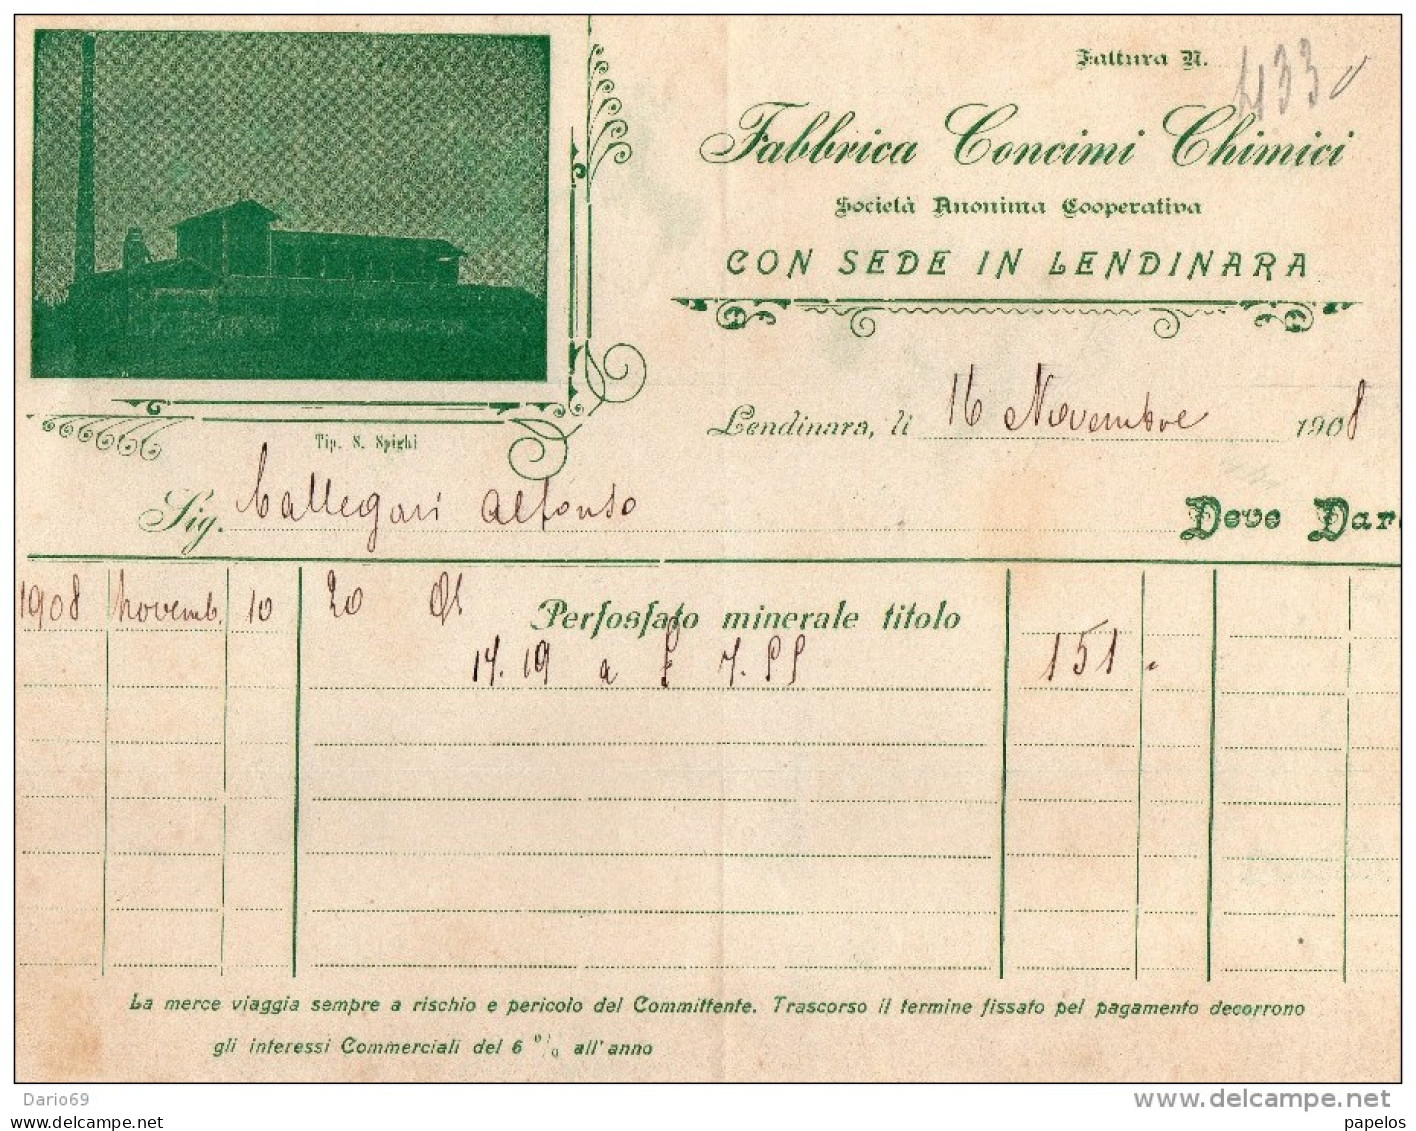 Fattura N. 433
Fabbrica Concimi Chimici
Società Anonima Cooperativa
CON SEDE IN LENDINARA
Lendinara, li 16 Novembre 1908
Tip. S. Spighi
Sig. Callegari Alfonso Deve Dare
1908 Novemb. 10 20 Ql Perfosfato minerale titolo
17.19 a £ 7.55 151.
La merce viaggia sempre a rischio e pericolo del Committente. Trascorso il termine fissato pel pagamento decorrono
gli interessi Commerciali del 6 % all'anno
Dario69
www.delcampe.net
papelos